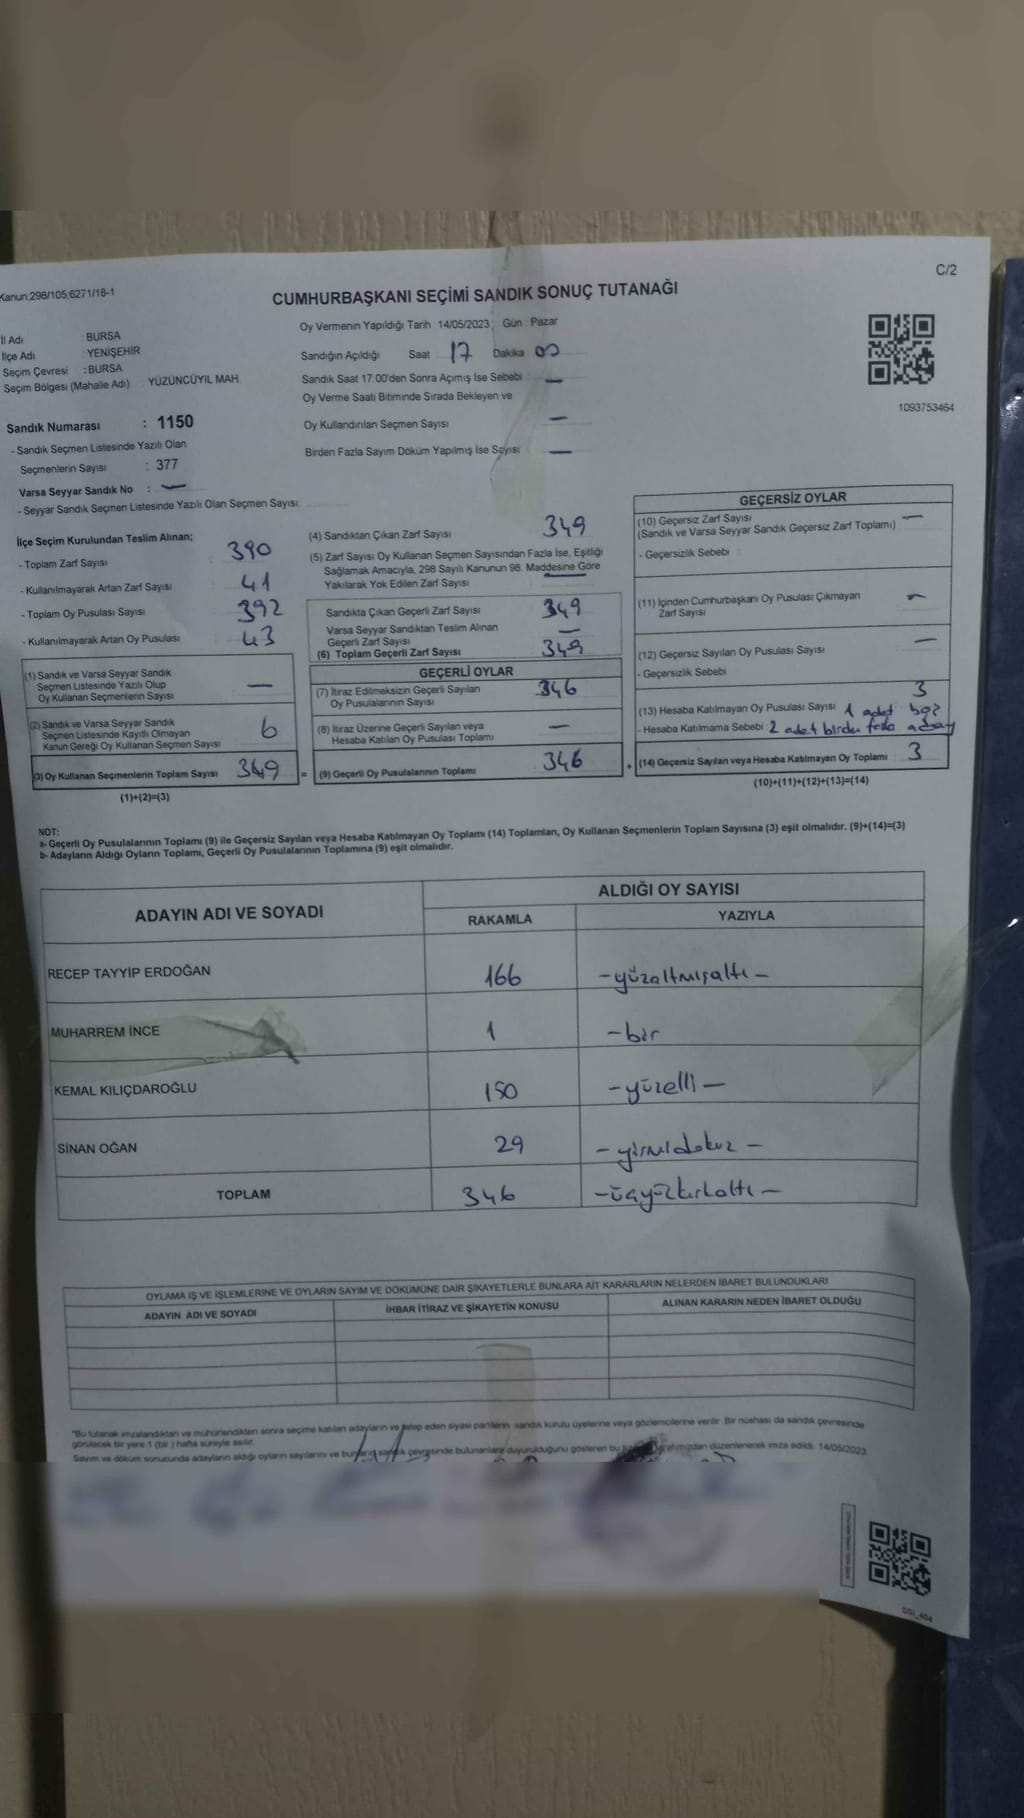 C/2
Kanun:298/105;6271/18-1
CUMHURBAŞKANI SEÇİMİ SANDIK SONUÇ TUTANAĞI
Oy Vermenin Yapıldığı Tarih 14/05/2023 ; Gün : Pazar
İl Adı : BURSA
İlçe Adı : YENİŞEHİR
Seçim Çevresi : BURSA
Seçim Bölgesi (Mahalle Adı) : YÜZÜNCÜYIL MAH.
Sandığın Açıldığı Saat 17 Dakika 00
Sandık Saat 17:00'den Sonra Açımış İse Sebebi : —
Oy Verme Saati Bitiminde Sırada Bekleyen ve
Oy Kullandırılan Seçmen Sayısı —
Birden Fazla Sayım Döküm Yapılmış İse Sayısı : —
1093753464
Sandık Numarası : 1150
- Sandık Seçmen Listesinde Yazılı Olan
Seçmenlerin Sayısı : 377
Varsa Seyyar Sandık No : —
- Seyyar Sandık Seçmen Listesinde Yazılı Olan Seçmen Sayısı:
İlçe Seçim Kurulundan Teslim Alınan;
- Toplam Zarf Sayısı 390
- Kullanılmayarak Artan Zarf Sayısı 41
- Toplam Oy Pusulası Sayısı 392
- Kullanılmayarak Artan Oy Pusulası 43
(1) Sandık ve Varsa Seyyar Sandık
Seçmen Listesinde Yazılı Olup
Oy Kullanan Seçmenlerin Sayısı —
(2) Sandık ve Varsa Seyyar Sandık
Seçmen Listesinde Kayıtlı Olmayan
Kanun Gereği Oy Kullanan Seçmen Sayısı 6
(3) Oy Kullanan Seçmenlerin Toplam Sayısı 349 =
(1)+(2)=(3)
(4) Sandıktan Çıkan Zarf Sayısı 349
(5) Zarf Sayısı Oy Kullanan Seçmen Sayısından Fazla İse, Eşitliği
Sağlamak Amacıyla, 298 Sayılı Kanunun 98. Maddesine Göre
Yakılarak Yok Edilen Zarf Sayısı —
Sandıkta Çıkan Geçerli Zarf Sayısı 349
Varsa Seyyar Sandıktan Teslim Alınan
Geçerli Zarf Sayısı —
(6) Toplam Geçerli Zarf Sayısı 349
GEÇERLİ OYLAR
(7) İtiraz Edilmeksizin Geçerli Sayılan
Oy Pusulalarının Sayısı 346
(8) İtiraz Üzerine Geçerli Sayılan veya
Hesaba Katılan Oy Pusulası Toplamı —
(9) Geçerli Oy Pusulalarının Toplamı 346 +
GEÇERSİZ OYLAR
(10) Geçersiz Zarf Sayısı —
(Sandık ve Varsa Seyyar Sandık Geçersiz Zarf Toplamı)
- Geçersizlik Sebebi
(11) İçinden Cumhurbaşkanı Oy Pusulası Çıkmayan
Zarf Sayısı —
(12) Geçersiz Sayılan Oy Pusulası Sayısı —
- Geçersizlik Sebebi
3
(13) Hesaba Katılmayan Oy Pusulası Sayısı 1 adet boş
- Hesaba Katılmama Sebebi 2 adet birden fazla aday
(14) Geçersiz Sayılan veya Hesaba Katılmayan Oy Toplamı 3
(10)+(11)+(12)+(13)=(14)
NOT:
a- Geçerli Oy Pusulalarının Toplamı (9) ile Geçersiz Sayılan veya Hesaba Katılmayan Oy Toplamı (14) Toplamları, Oy Kullanan Seçmenlerin Toplam Sayısına (3) eşit olmalıdır. (9)+(14)=(3)
b- Adayların Aldığı Oyların Toplamı, Geçerli Oy Pusulalarının Toplamına (9) eşit olmalıdır.
ADAYIN ADI VE SOYADI
ALDIĞI OY SAYISI
RAKAMLA YAZIYLA
RECEP TAYYİP ERDOĞAN 166 -yüzaltmışaltı-
MUHARREM İNCE 1 -bir
KEMAL KILIÇDAROĞLU 150 -yüzelli-
SİNAN OĞAN 29 -yirmidokuz-
TOPLAM 346 -üçyüzkırkaltı-
OYLAMA İŞ VE İŞLEMLERİNE VE OYLARIN SAYIM VE DÖKÜMÜNE DAİR ŞİKAYETLERLE BUNLARA AİT KARARLARIN NELERDEN İBARET BULUNDUKLARI
ADAYIN ADI VE SOYADI İHBAR İTİRAZ VE ŞİKAYETİN KONUSU ALINAN KARARIN NEDEN İBARET OLDUĞU
"Bu tutanak imzalandıktan ve mühürlendikten sonra seçime katılan adayların ve talep eden siyasi partilerin sandık kurulu üyelerine veya gözlemcilerine verilir. Bir nüshası da sandık çevresinde
görülecek bir yere 1 (bir) hafta süreyle asılır.
Sayım ve döküm sonucunda adayların aldığı oyların sayılarını ve bunların sandık çevresinde bulunanlara duyurulduğunu gösteren bu düzenlenerek imza edildi. 14/05/2023
SSI_404